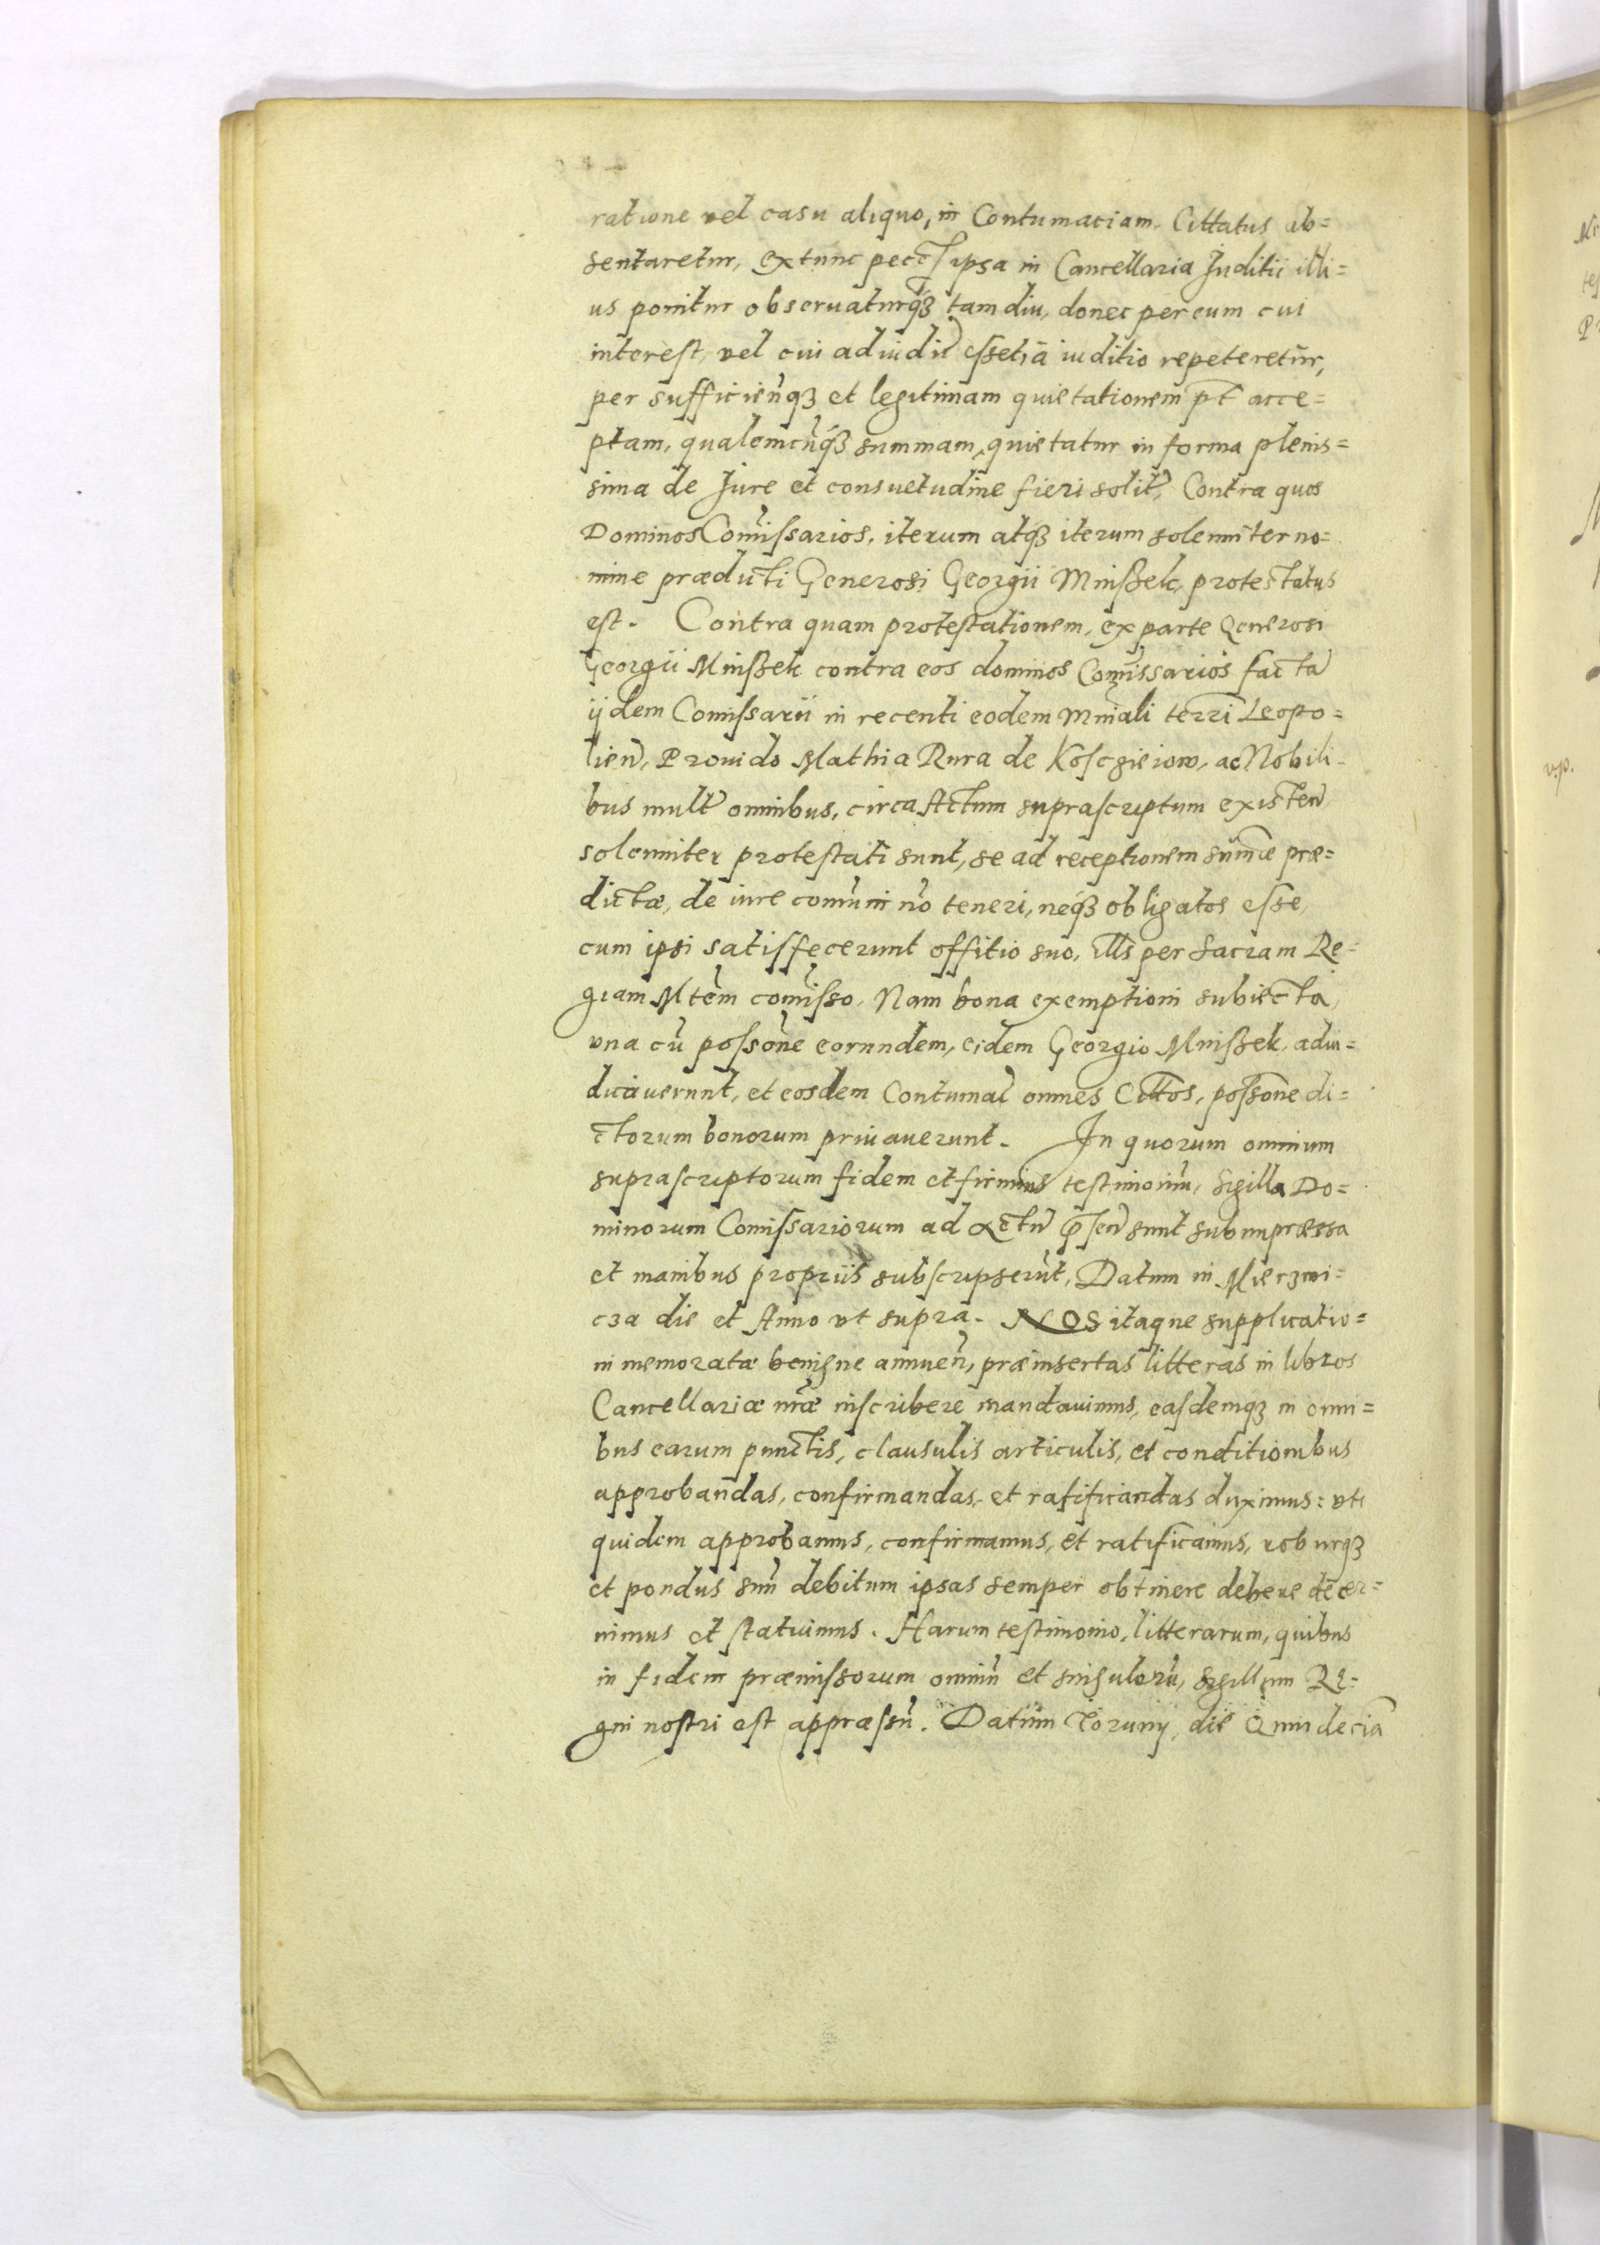 ratione vel casu aliquo, in Contumaciam Cittatus ab=
sentaretur, ex tunc ipsa in Cancellaria Juditii illi=
us ponitur observaturq3 tam diu, donec per eum cui
interest, vel cui adiudic̄ esset, a iuditio repeteretur,
per sufficien̄q3 et legitimam quietationem pt̄ acce=
ptam, qualemcūq3 summam, quietatur in forma plenis=
sima de Jure et consuetudine fieri solit̄, Contra quos
Dominos Com̄issarios, iterum atq3 iterum solemniter no=
mine prædicti Generosi Georgii Mnißek, protestatus
est. Contra quam protestationem, ex parte Generosi
Georgii Mnißek contra eos dominos Com̄issarios facta
ijdem Comissarii in recenti eodem Mniāli terrī Leopo=
lien̄, Provido Mathia Rura de Kosczieiow, ac Nobili=
bus mult̄ omnibus, circa Actum suprascriptum existen̄
solemniter protestati sunt, se ad receptionem sum̄æ præ=
dictæ, de iure com̄uni nō teneri, neq3 obligatos esse,
cum ipsi satisfecerunt offitio suo, ill̄s per Sacram Re=
giam Mtēm com̄isso. Nam bona exemptioni subiecta,
una cū possōne eorundem, eidem Georgio Mnißek adiu=
dicaverunt, et eosdem Contumac̄ omnes Cittōs, possōne di=
ctorum bonorum privaverunt. In quorum omnium
suprascriptorum fidem et firmius testimoniū, Sigilla Do=
minorum Comissariorum ad actū p̄sen̄ sunt subimpræssa
et manibus propriis subscripserūt, Datum in Mierzwi=
cza die et Anno ut supra. NOS itaque supplicatio=
ni memoratæ benigne annuen̄, præinsertas litteras in libros
Cancellariæ nr̄æ inscribere mandavimus, easdemq3 in omni=
bus earum punctis, clausulis articulis, et conditionibus
approbandas, confirmandas, et ratificandas duximus: uti
quidem approbamus, confirmamus, et ratificamus, roburq3
et pondus suū debitum ipsas semper obtinere debere decer=
nimus et statuimus. Harum testimonio, litterarum, quibus
in fidem præmissorum omniū et singulorū, sigillum Re=
gni nostri est appræssū. Datum Torunij, die Quindecīa